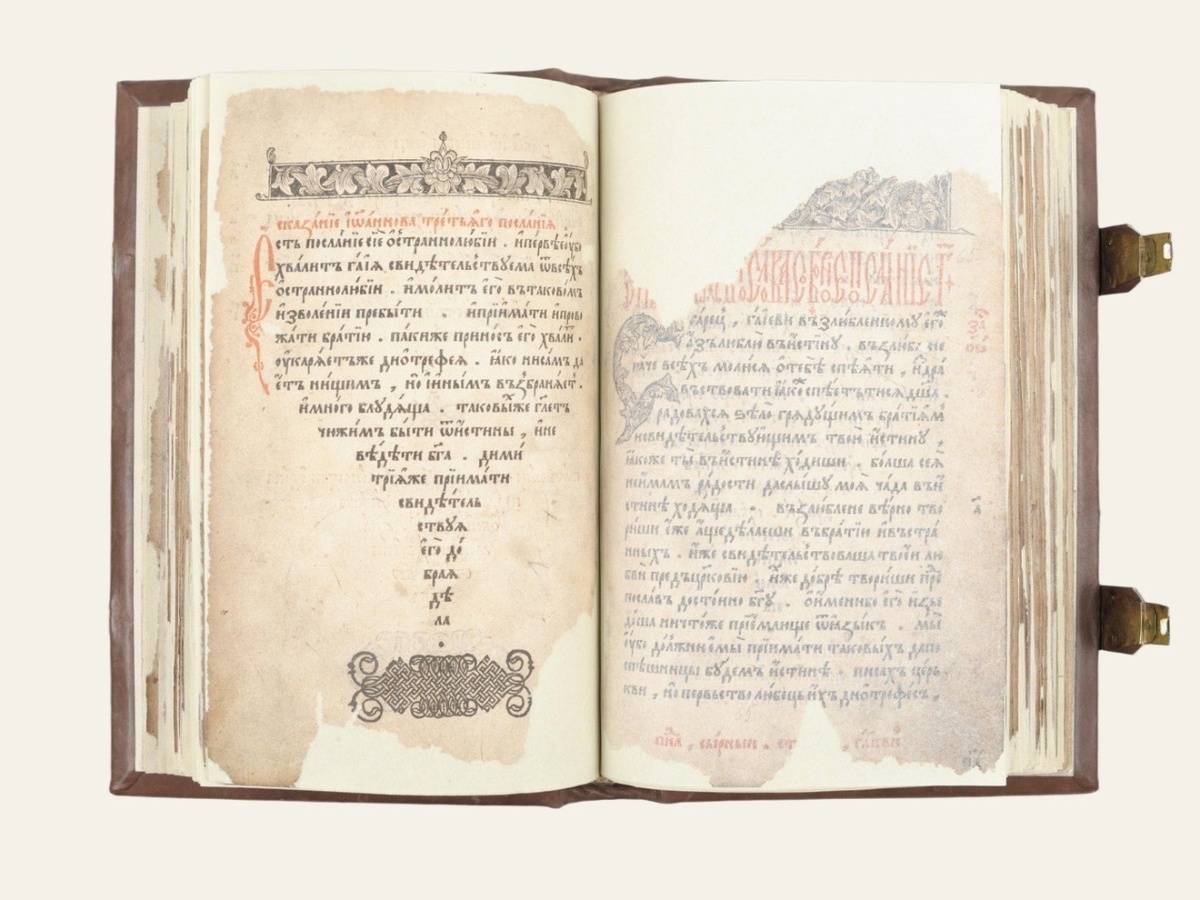 сказа́нїе і҆ѡа́ннова тре́тьѧго посла́нїѧ .
Є҆сть посла́нїе сїѐ ѡ҆страннолю́бїи . и҆пе́рвѣе ᲂу҆́бо
хва́литъ га́їѧ свидѣ́тельствуема ѿвсѣ́хъ
ѡ҆страннолю́бїи . и҆мо́литъ є҆го̀ вътаково́мъ
и҆зволе́нїи пребы́ти . и҆прїима́ти и҆прово
жа́ти бра́тїю . па́киже прино́съ є҆го̀ хва́ли .
ᲂу҆карѧ́етъже дїѡтрефе́ѧ . ꙗ҆́ко ниса́мъ да
є҆́тъ ни́щимъ , но и҆и҆ны́мъ възбранѧ́етъ .
и҆мно́го блудѧ́ща . таковы́хже гл҃етъ
чюжи́мъ бы́ти ѿи҆́стины , и҆не
вѣ́дѣти бг҃а . дими́
трїѧже прїима́ти
свидѣ́тель
ствуѧ
є҆го̀ до́
браѧ
дѣ́
ла
ста́рец , га́їеви възлю́бленному є҆го́
а҆́зълюблю̀ въи҆́стину . възлю́бле не
па́че всѣ́хъ молю́сѧ ѡ҆тебѣ̀ спѣ́ѧти , и҆здра́
въствовати ꙗ҆́коже спѣ́етътисѧ дш҃а .
ра́довахсѧ ѕѣло̀ грѧду́щимъ бра́тїѧм
и҆свидѣ́тельствующимъ твою̀ и҆́стину ,
ꙗ҆́коже ты̀ въи҆́стинѣ хо́диши . бо́лша сеѧ̀
неи҆́мамъ ра́дости даслы́шу моѧ̀ ча́да въи҆́
стинѣ ходѧ́ща . възлю́блене вѣ́рно тво
ри́ши є҆́же а҆́щедѣ́лаеши въбра́тїю и҆въстра́
нныхъ . и҆́же свидѣ́тельствоваша твое́й лю
бви́ предъцр҃ковїю . и҆́хже до́брѣ твори́ши про
посла́въ досто́йно бг҃у . ѡ҆и҆́менибо є҆го̀ и҆зы
до́ша ничто́же прїе́млюще ѿꙗ҆зы́къ . мы̀
ᲂу҆́бо до́лжниє҆смы̀ прїима́ти таковы́хъ дапо
спѣ́шницы бу́демъ и҆́стинѣ . писа́хъ це́рь
кви , но̀ пе́рвьстволюбець и҆́хъ дїѡтре́фесъ ,